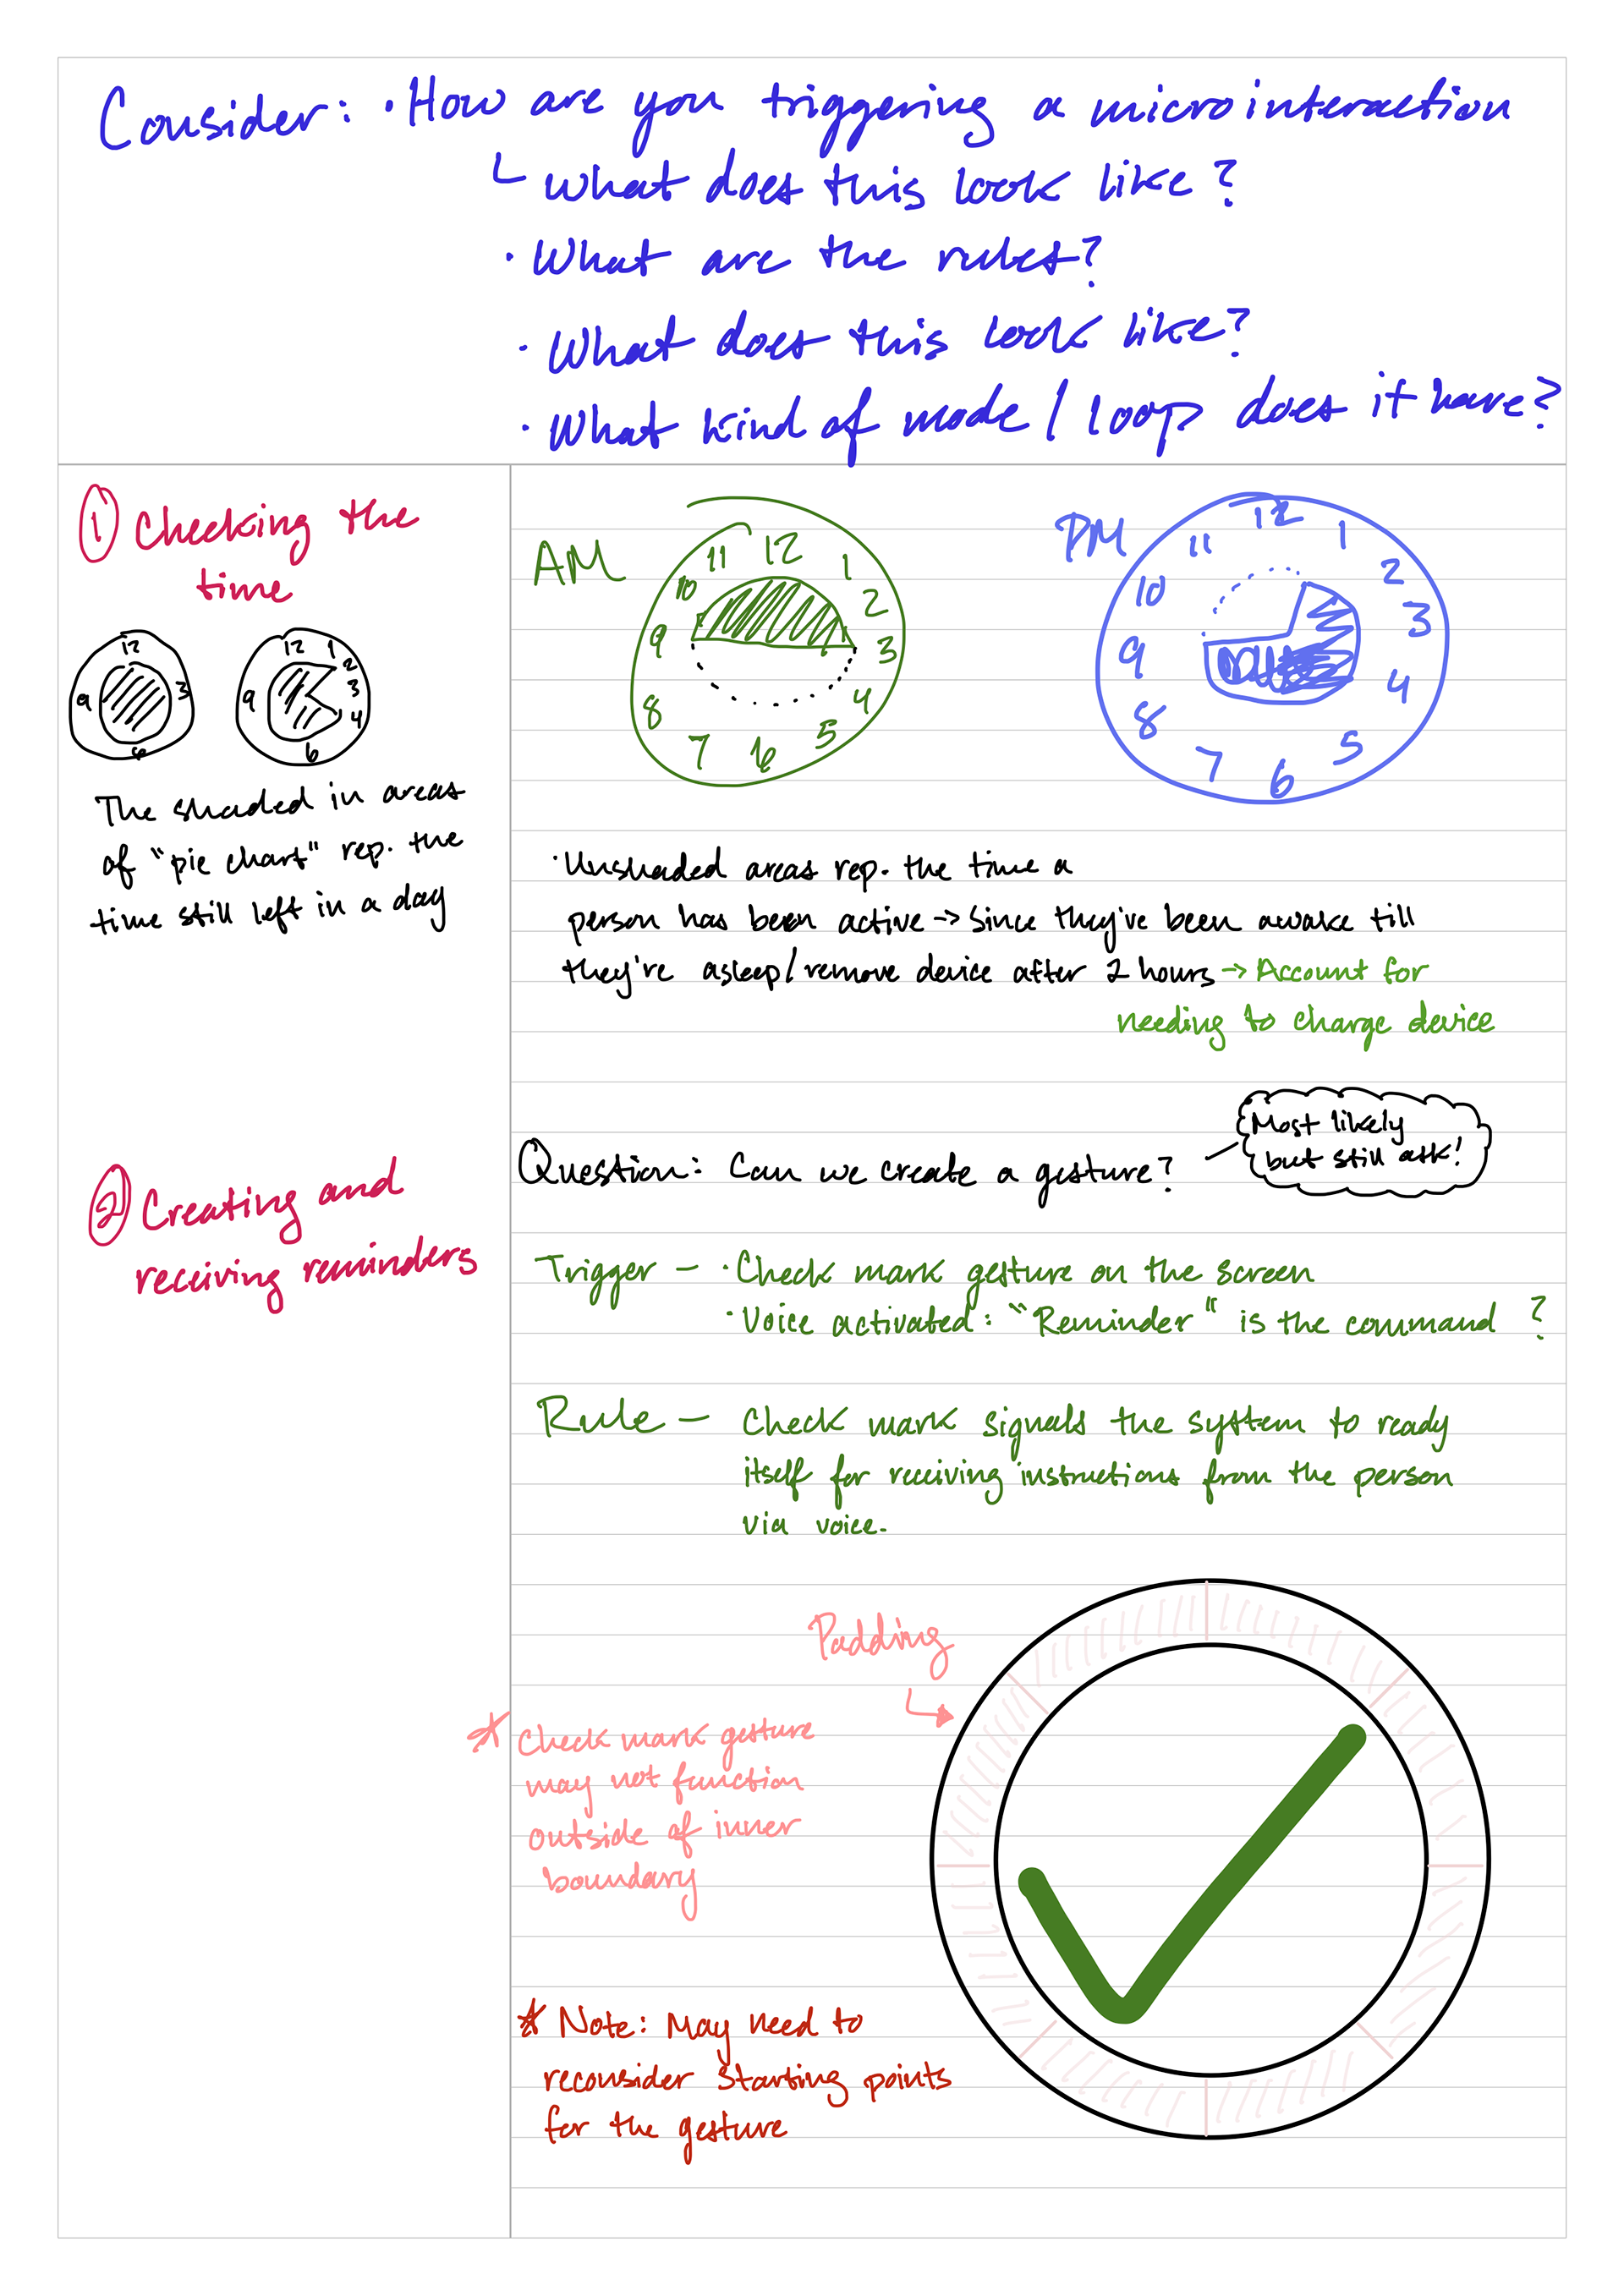 Consider: · How are you triggering a microinteraction
↳ what does this look like?
· What are the rules?
· What does this look like?
· What kind of mode / loop does it have?
① Checking the
time
12
3
6
9
12
1
2
3
4
6
9
The shaded in areas
of "pie chart" rep. the
time still left in a day
AM
12
1
2
3
4
5
6
7
8
9
10
11
PM
12
1
2
3
4
5
6
7
8
9
10
11
· Unshaded areas rep. the time a
person has been active → Since they've been awake till
they're asleep/remove device after 2 hours → Account for
needing to charge device
② Creating and
receiving reminders
Question: Can we create a gesture?
Most likely
but still ask!
Trigger – · Check mark gesture on the screen
· Voice activated: "Reminder" is the command ?
Rule – Check mark signals the system to ready
itself for receiving instructions from the person
via voice.
Padding
* Check mark gesture
may not function
outside of inner
boundary
* Note: May need to
reconsider starting points
for the gesture